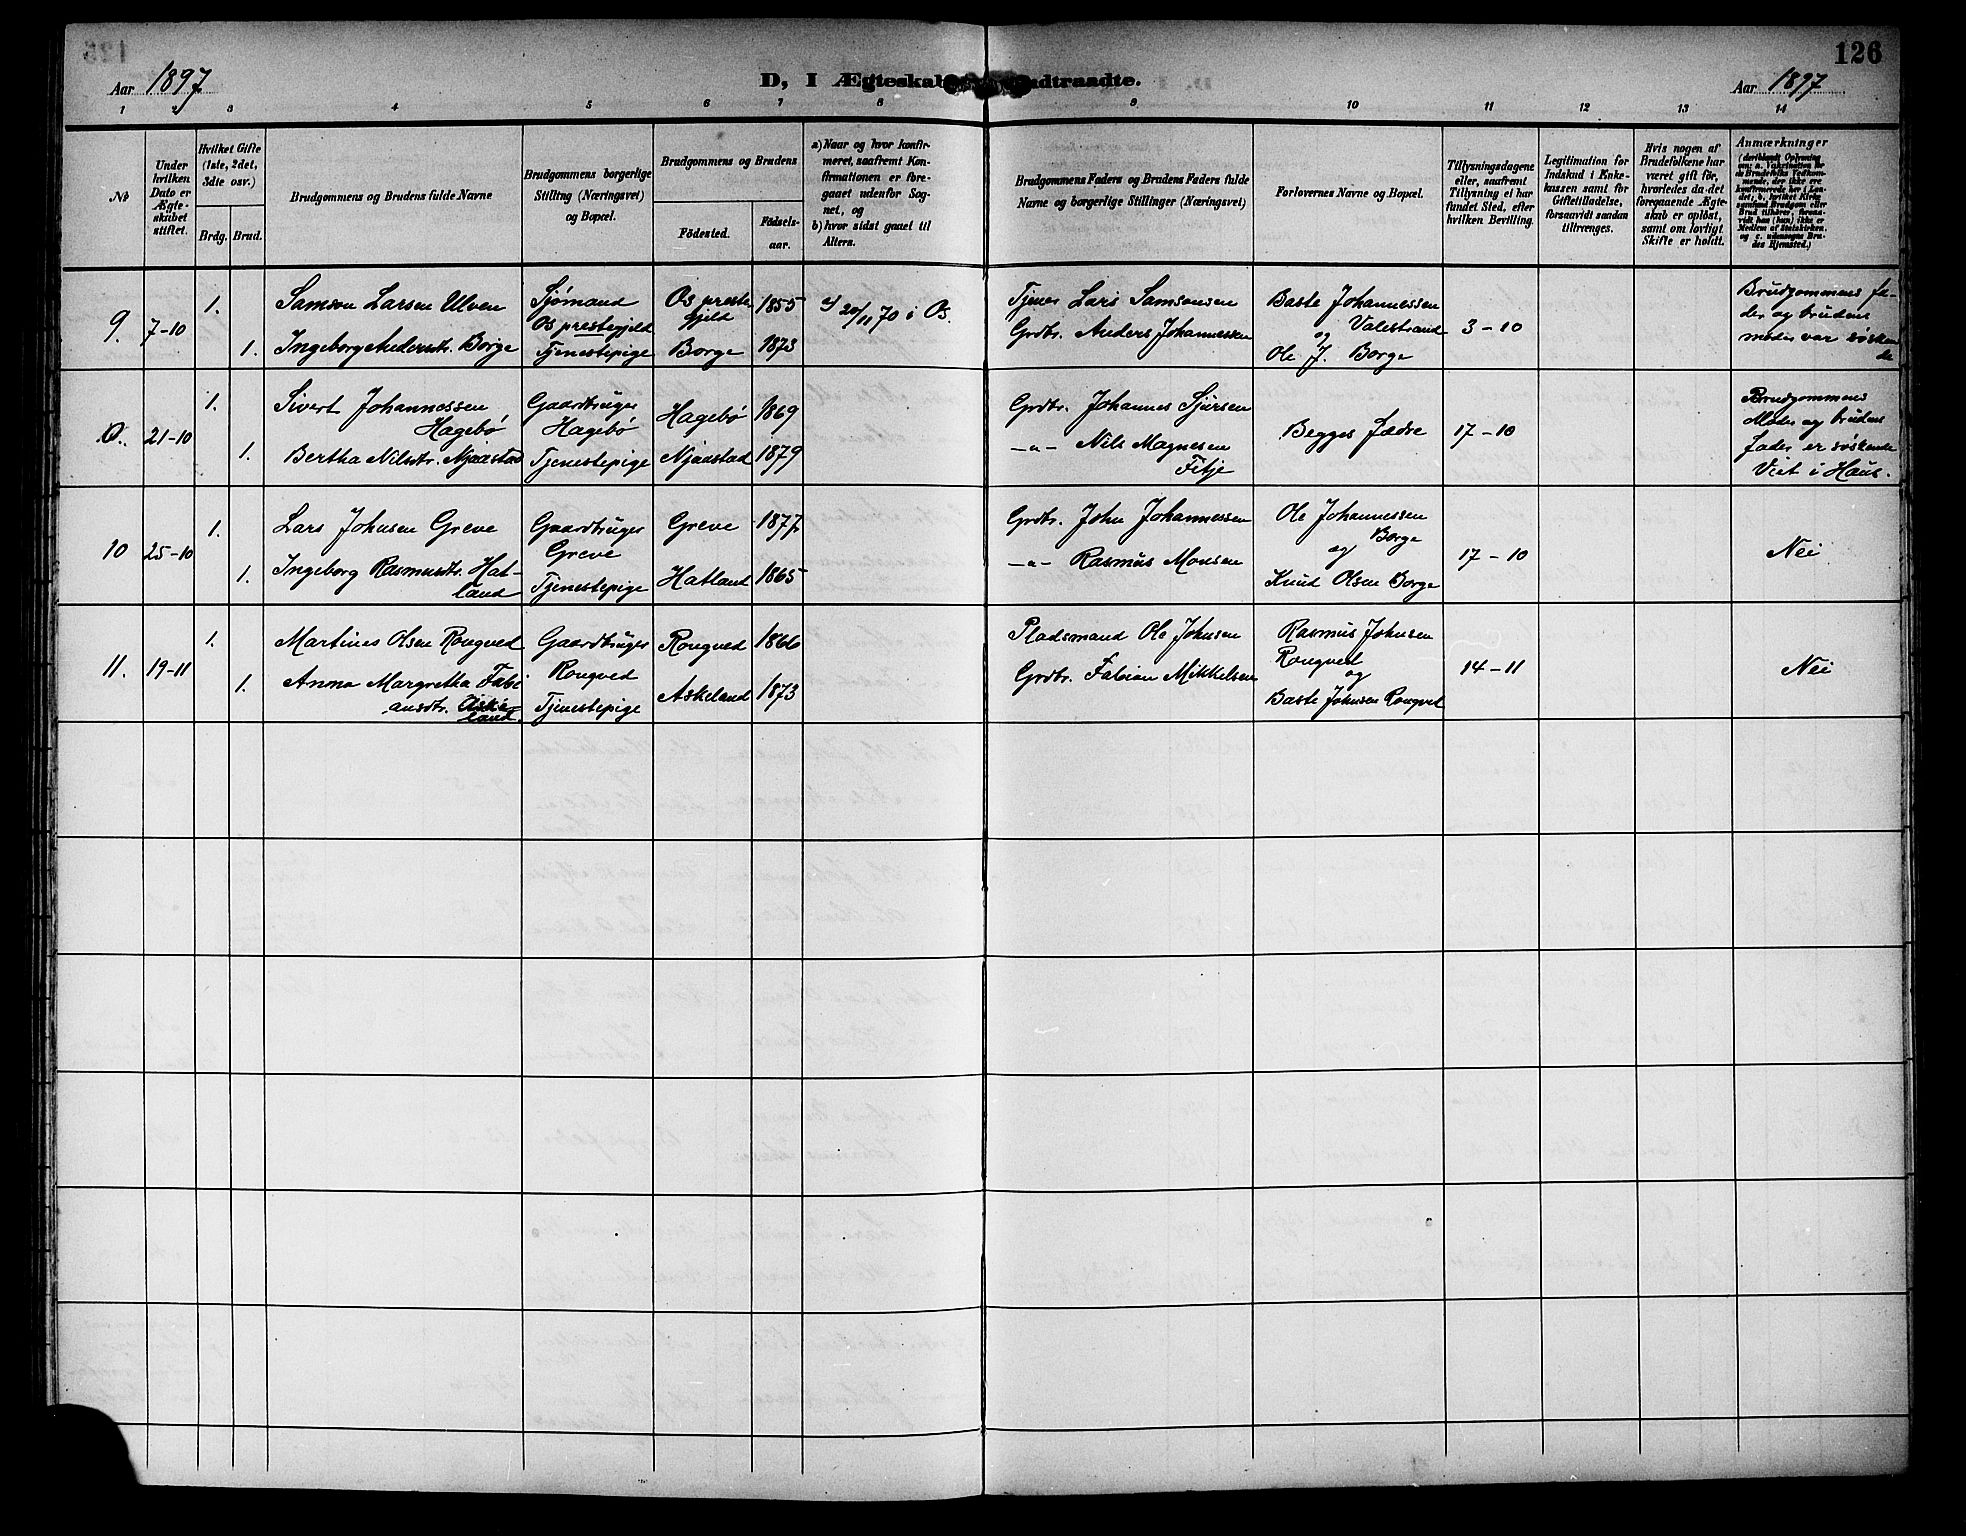 126
Aar 1897
D, I Ægteskab Indtraadte.
Aar 1897
1 2 3 4 5 6 7 8 9 10 11 12 13 14
№
Under hvilken Dato er Ægteskabet stiftet.
Hvilket Gifte (1ste, 2det, 3die osv.)
Brdg. Brud.
Brudgommens og Brudens fulde Navne
Brudgommens borgerlige Stilling (Næringsvei) og Bopæl.
Brudgommens og Brudens
Födested. Födselsaar.
a) Naar og hvor konfirmeret, saafremt Konfirmationen er foregaaet udenfor Sognet, og
b) hvor sidst gaaet til Alters.
Brudgommens Faders og Brudens Faders fulde Navne og borgerlige Stillinger (Næringsvei)
Forlovernes Navne og Bopæl.
Tillysningsdagene eller, saafremt Tillysning ei har fundet Sted, efter hvilken Bevilling.
Legitimation for Indskud i Enkekassen samt for Giftetilladelse, forsaavidt saadan tiltrænges.
Hvis nogen af Brudefolkene har været gift för, hvorledes da det foregaaende Ægteskab er oplöst, samt om lovligt Skifte er holdt.
Anmærkninger
(deriblandt Oplysning om: a. Vakcination for de Brudefolks Vedkommende, der ikke ere konfirmerede her i Landet; b. hvilket Kirkesamfund Brudgom eller Brud tilhörer, forsaavidt han (hun) ikke er Medlem af Statskirken, og c. udensogns Brudes Hjemsted.)
9. 7-10 1. Samson Larsen Ulven Sjømand Os prestegjeld Os prestegjeld 1855 20/11 70 i Os. Tjener Lars Samsonsen Baste Johannessen Valestrand 3-10 Brudgommens fader og brudens moder var søskende
1. Ingeborg Andersdtr. Borge Tjenestepige Borge 1873 Grdbr. Anders Johannessen og Ole J. Borge
O. 21-10 1. Sivert Johannessen Hagebø Gaardbruger Hagebø Hagebø 1869 Grdbr. Johannes Sjursen Begges fædre 17-10 Brudgommens Moder og brudens fader er søskende Viet i Haus.
1. Bertha Nilsdtr. Njaastad Tjenestepige Njaastad 1879 -"- Nils Magnesen Fitje
10 25-10 1. Lars Johnsen Greve Gaardbruger Greve Greve 1877 Grdbr. John Johannessen Ole Johannessen Borge 17-10 Nei
1. Ingeborg Rasmusdtr. Hatland Tjenestepige Hatland 1865 -"- Rasmus Monsen og Knud Olsen Borge
11. 19-11 1. Martines Olsen Rongved Gaardbruger Rongved Rongved 1866 Pladsmand Ole Johnsen Rasmus Johnsen Rongved 14-11 Nei
1. Anna Margretha Fabiansdtr. Askeland. Tjenestepige Askeland 1873 Grdbr. Fabian Mikkelsen og Baste Johnsen Rongved